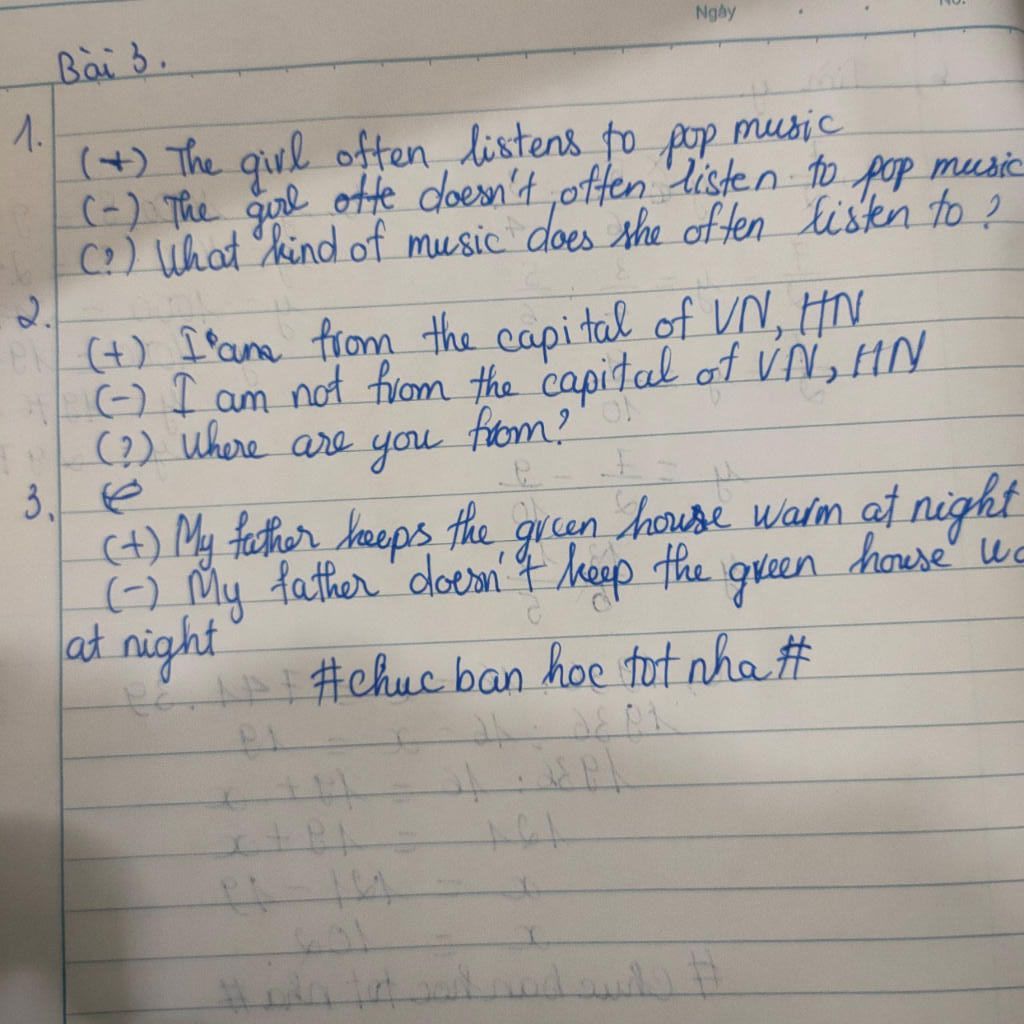 Ngày
No.
Bài 3.
1.
(+) The girl often listens to pop music
(-) The girl otte doesn't often listen to pop music
(?) What kind of music does she often listen to?
2.
(+) I am from the capital of VN, HN
(-) I am not from the capital of VN, HN
(?) Where are you from?
3.
(+) My father keeps the green house warm at night
(-) My father doesn't keep the green house wa
at night
#chuc ban hoc tot nha#